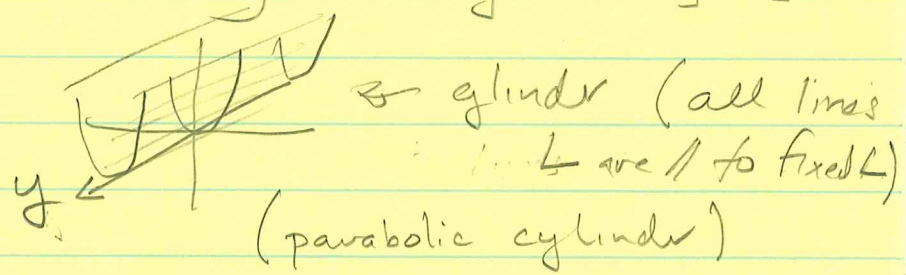 cylinder (all lines
L are // to fixed L)
y
(parabolic cylinder)